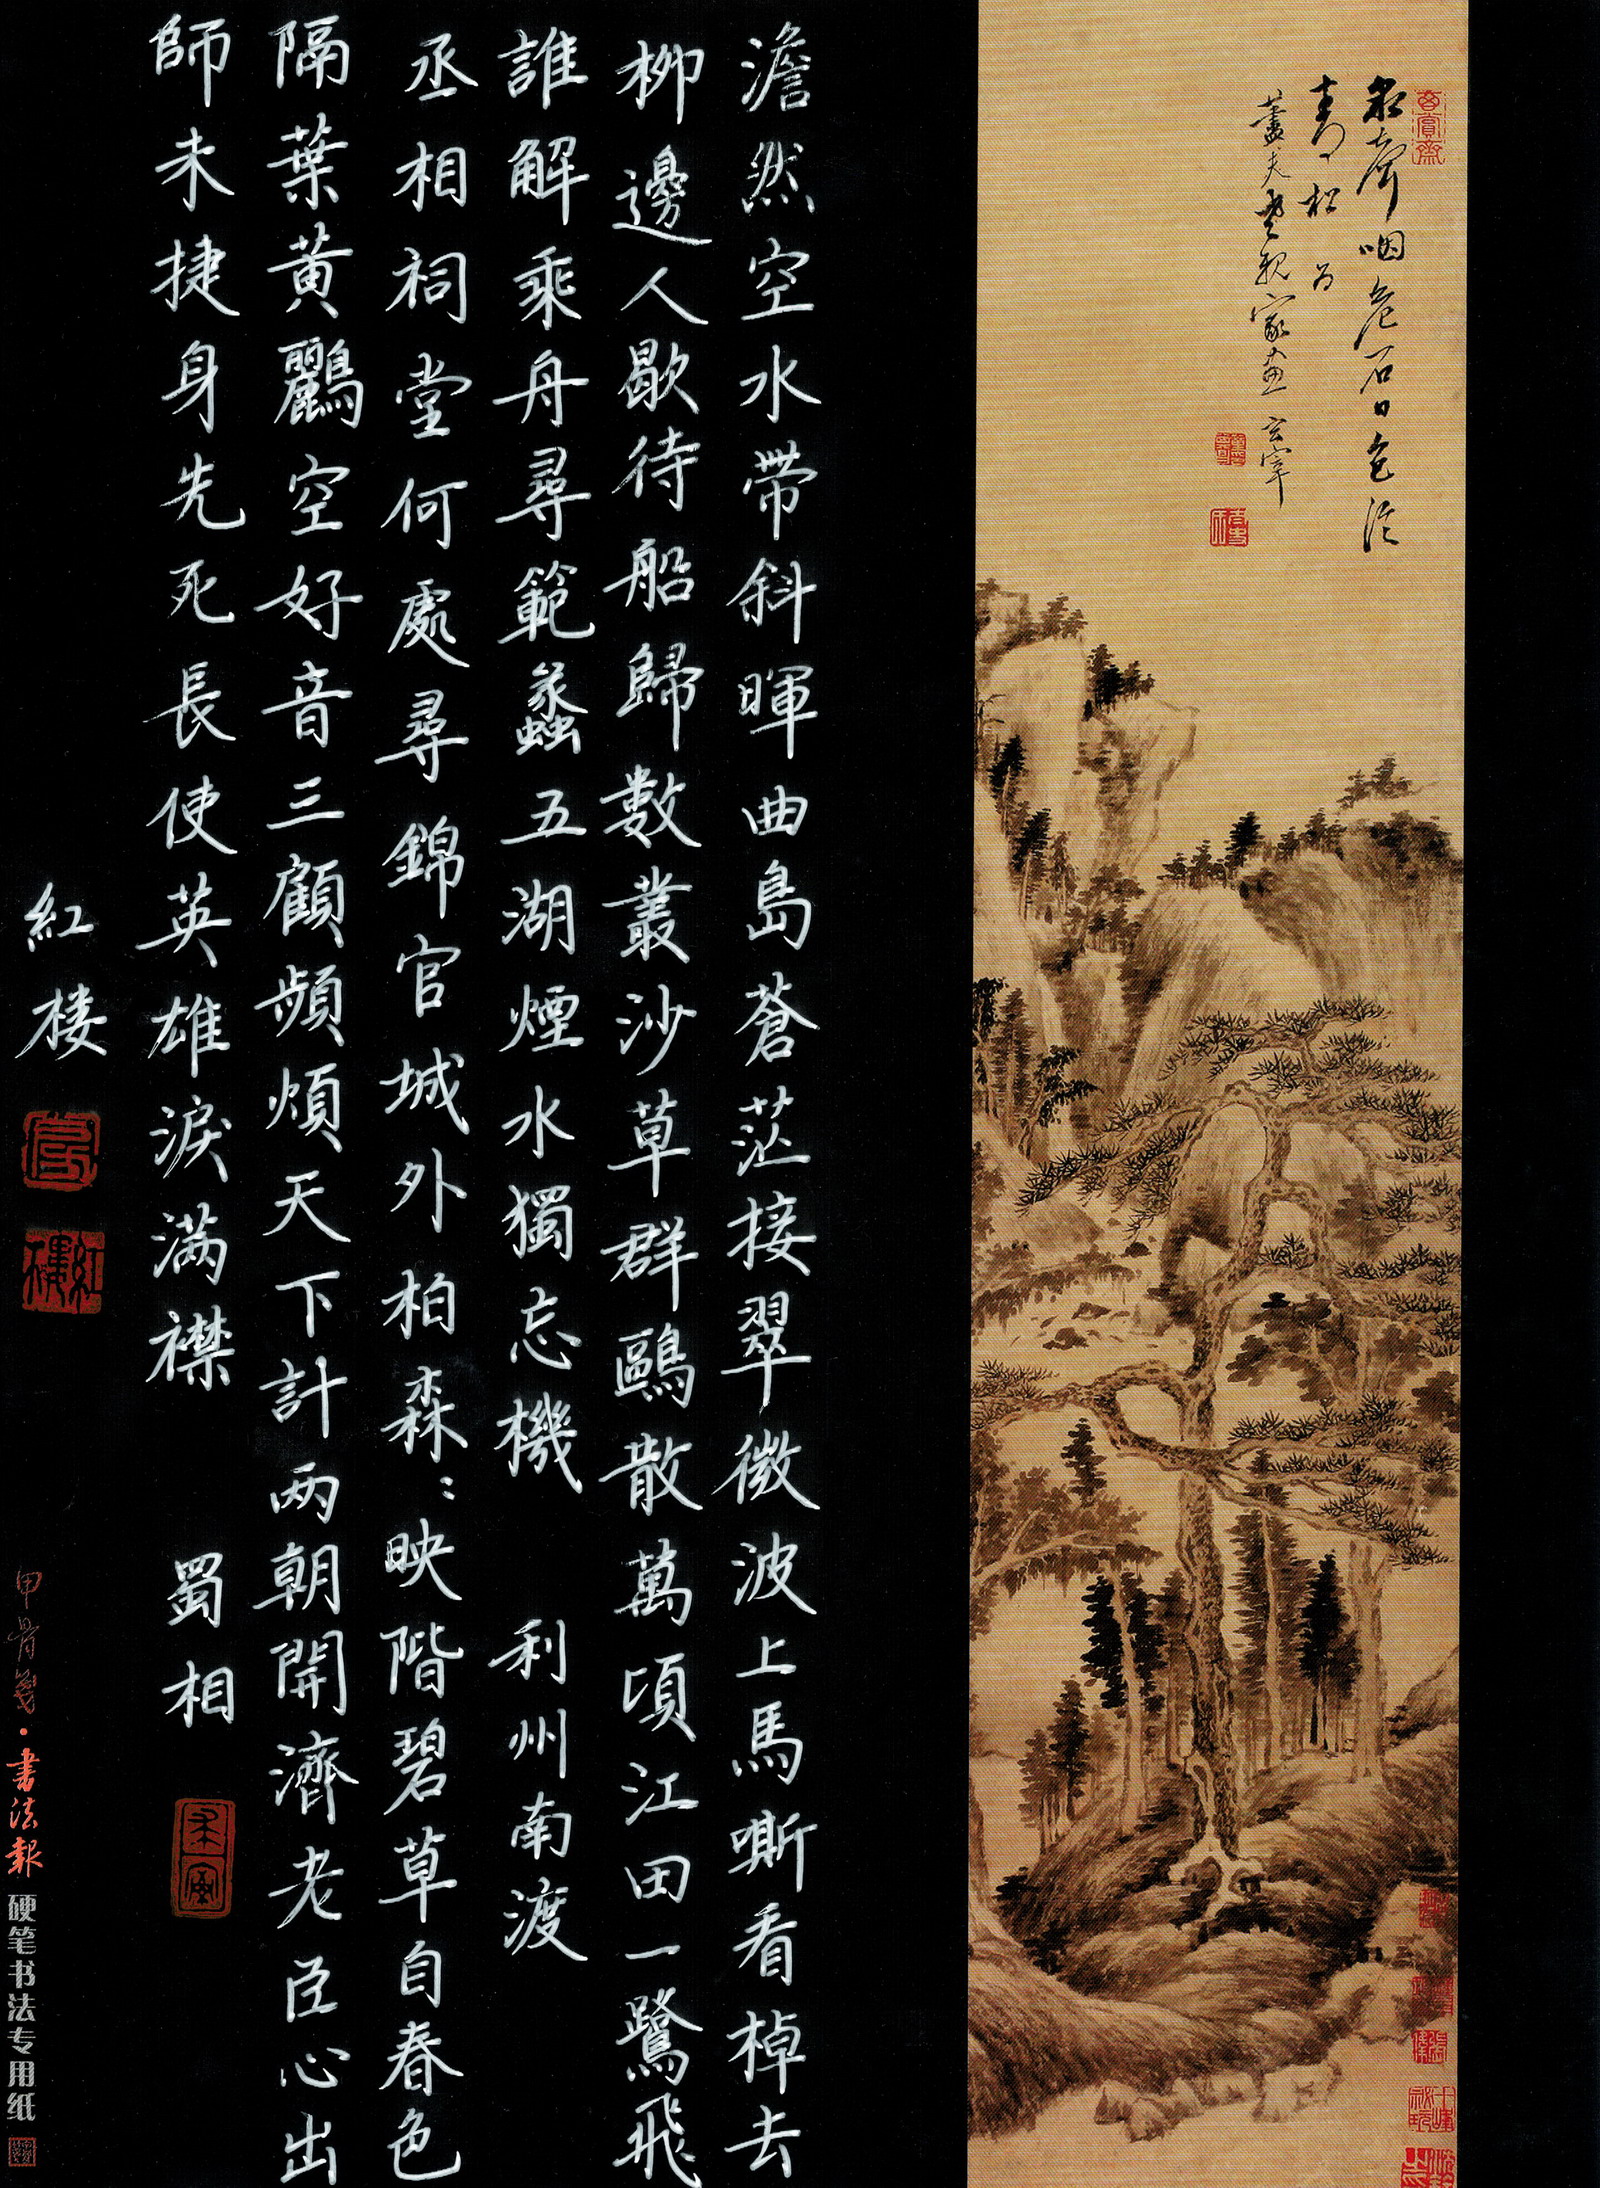 玄賞齋
泉聲咽危石日色冷
青松 為
藎夫老親家畫 玄宰
澹然空水帶斜暉曲島蒼茫接翠微波上馬嘶看棹去
柳邊人歇待船歸數叢沙草群鷗散萬頃江田一鷺飛
誰解乘舟尋範蠡五湖煙水獨忘機 利州南渡
丞相祠堂何處尋錦官城外柏森:映階碧草自春色
隔葉黃鸝空好音三顧頻煩天下計两朝開濟老臣心出
師未捷身先死長使英雄淚满襟 蜀相
紅楼
紅樓
甲骨箋·書法報 硬笔书法专用纸